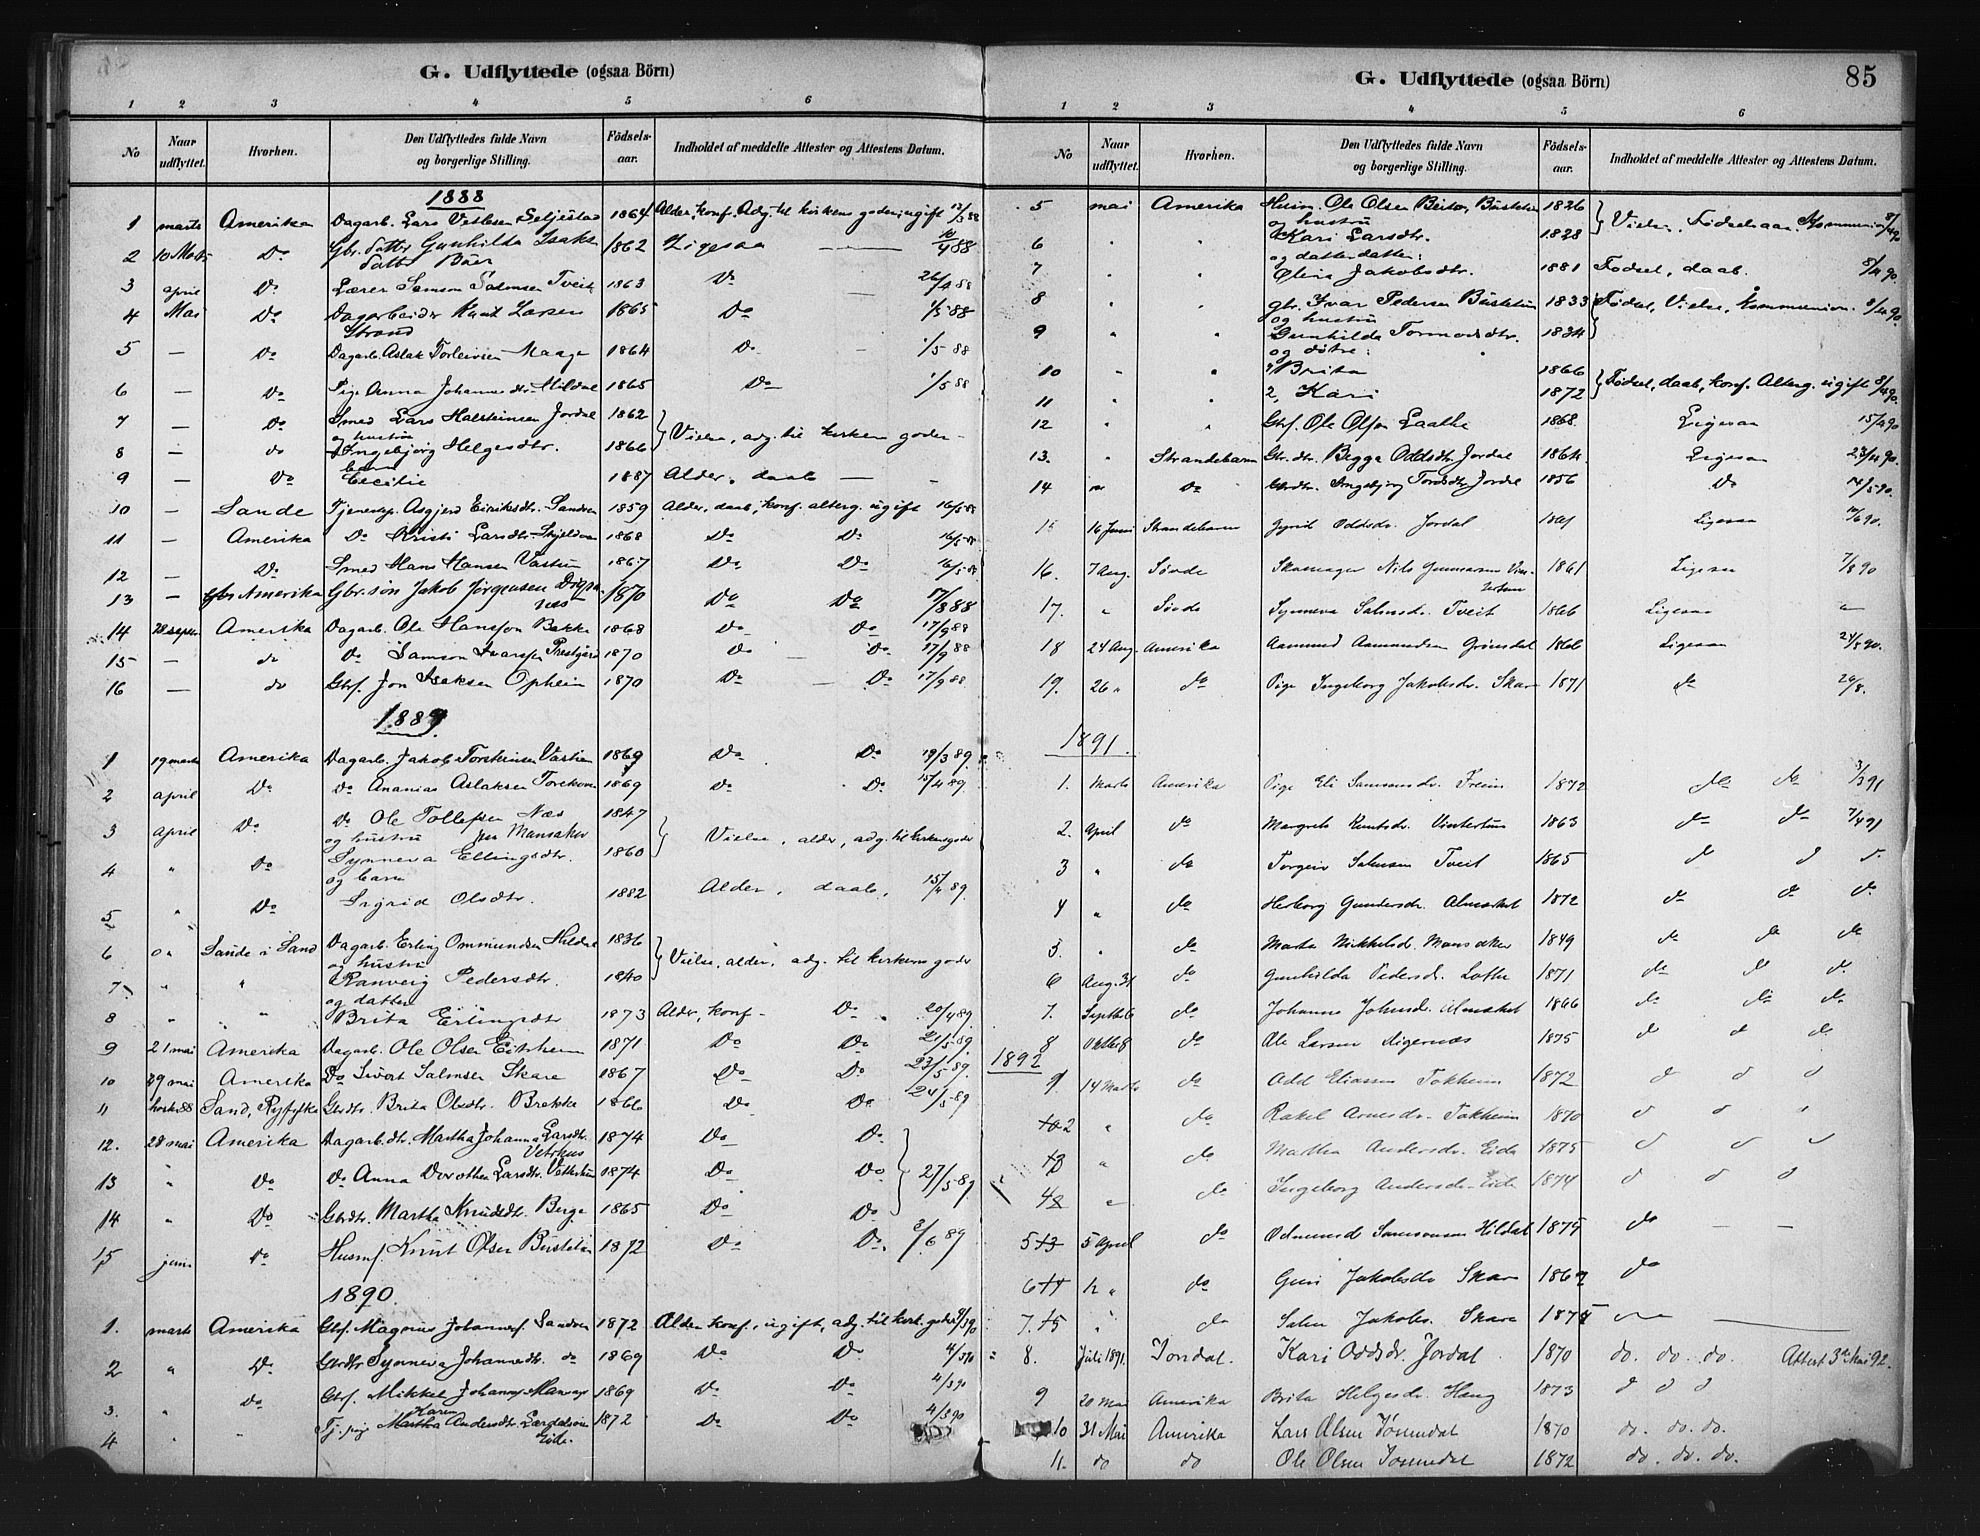 G. Udflyttede (ogsaa Börn)
1 2 3 4 5 6
No Naar udflyttet. Hvorhen. Den Udflyttedes fulde Navn og borgerlige Stilling. Födsels-aar. Indholdet af meddelte Attester og Attestens Datum.
1888
1 marts Amerika Dagarb. Lars Vetlesen Seljestad 1864 Alder, konf. Adg. til kirkens goder, ugift 12/3 88
2 10 Marts Do Gbr. datter Gunhilda Isaks 1862 Ligesaa 10/4 88
datter Büer
3 april Do Lærer Samson Salmsen Tveit 1863 Do 26/4 88
4 Mai Do Dagarbeider Knut Larsen 1865 Do 1/5 88
Strand
5 — Do Dagarb. Aslak Torleivsen Maage 1864 Do 1/5 88
6 — Do Pige Anna Johannesdtr. Hildal 1865 Do 1/5 88
7 — Do Smed Lars Halsteinsen Jordal 1862
og hustru } Vielse, adg. til kirkens goder
8 — do Ingebjørg Helgesdtr. 1866
barn
9 — Do Cecilie 1887 Alder, daab —
10 — Sande Tjenesp. Asgjerd Eiriksdtr. Sandven 1859 Alder, daab, konf. alterg. ugift 16/5 88
11 — Amerika Do Kristi Larsdtr. 1868 Do Do 16/5 88
12 — Do Smed Hans Hansen 1867 Do Do 16/5 88
13 — Amerika Gbr. søn Jakob Jørgensen Digra 1870 Do Do 17/8 88
næs
14 28 septbr Amerika Dagarb. Ole Hansson Bakke 1868 Do Do 17/9 88
15 — do Do Samson Ivarsen Prestgård 1870 Do Do 17/9 88
16 — do Gbf. Jon Isaksen Opheim 1870 Do Do 17/9 88
1889
1 19 marts Amerika Dagarb. Jakob Torsteinsen 1869 Do Do 19/3 89
2 april Do Do Ananias Aslaksen 1869 Do Do 15/4 89
3 april Do Do Ole Tollefsen Næs 1847
og hustru Mansaker } Vielse, alder, adg. til kirkens goder
4 " Do Synneva Ellingsdtr. 1860
og barn
5 " Do Sigrid Olsdtr. 1882 Alder, daab, 15/4 89
6 Sande i Sand Dagarb. Erling Ommundsen Hildal 1836
og hustru } Vielse, alder, adg. til kirkens goder
7 " " Ranveig Pedersdtr. 1840
og datter
8 " " " Brita Erlingsdtr 1873 Alder, konf. Do 20/4 89
9 21 mai Amerika Dagarb. Ole Olsen Eitrheim 1871 Do Do 21/5 89
10 29 mai Amerika Do Sivert Salmsen Skare 1867 Do Do 23/5 89
11 høsten 88 Sand, Ryfylke Gbrdtr. Brita Olsdtr. Brekke 1866 Do Do 24/5 89
12. 28 mai Amerika Dagarb. dtr. Martha Johanna Larsdtr. 1874 Do Do
13 " Do Do Anna Dorothea Larsdtr. 1874 Do Do } 27/5 89
14 " Do Gbrdtr. Martha Knudsdtr. Berge 1865 Do Do
15 juni do Husmf. Knut Olsen Bustetün 1872 Do Do 3/6 89
1890
1. marts Amerika Gbf. Magnus Johannesf. Sandven 1872 Alder, konf., ugift, adg. til kirk. goder 4/3 90
2 " Do Gbrdtr Synneva Johannesdtr. do 1869 Do Do 4/3 90
3. " do Gbf. Mikkel Johannes 1869 Do Do 4/3 90
Karen
4 " " Tj. pige Martha Andersdtr. 1872 Do Do 4/3 90
Eide.
G. Udflyttede (ogsaa Börn) 85
1 2 3 4 5 6
No Naar udflyttet. Hvorhen. Den Udflyttedes fulde Navn og borgerlige Stilling. Födsels-aar. Indholdet af meddelte Attester og Attestens Datum.
5 mai Amerika Husm. Ole Olsen Bustetün 1826
og hustru } Vielse, Fødselsaar, Kommunion 8/4 90
6 " " Kari Larsdtr. 1828
og datterdatter:
7 " " Olina Jakobsdtr. 1881 Fødsel, daab. 8/4 90
8 " " gbr. Ivar Pedersen Bustetun 1833 } Fødsel, Vielse, Kommunion. 8/4 90.
og hustru
9 " " Gunhilda Tormodsdtr. 1834
og døtre:
10 " " 1, Brita 1866 } Fødsel, daab, konf. Alterg. ugift 8/4 90.
11 " " 2, Kari 1872
12 " " Gbf. Ole Olsen Laathe 1868. Ligesaa 15/4 90
13. " Strandebarm Gbr. dtr. Begga Oddsdtr. Jordal 1864. Ligesaa 23/4 90.
14 " do Gbrdtr. Ingebjørg Tordsdtr. Jordal 1856 Do 14/5 90.
15 16 Juni Strandebarm Gyrid Oddsdr. Jordal Ligesaa 10/6 90.
16. 7 Aug. Søvde Skomager Nils Gunnarsen 1861 Ligesaa 7/8 90
17. " Søvde Synneva Salmsdr. Tveit 1866 Ligesaa "
18 24 Aug. Amerika Aamund Aamundsen Grønsdal 1866 Ligesaa 24/8 90.
19. 26 " do Pige Ingeborg Jakobsdr. Skare 1871 do 26/8.
1891.
1. Marts Amerika Pige Eli Samsonsdr. Freim 1872 do do 3/3 91
2. April do Margreta Knutsdr. Vintertun 1863 do do 7/4 91
3 " do Torgeir Salmsen Tveit 1865 do d d.
4 " do Herborg Gundersdr. Almerket 1872 do do do
5. " do Marta Nikkelsd. Mansaker 1849 do do do
6 Aug. 31 do Gunhilda Pedersdr. Lothe 1871 do do do
7. Septbr 6 do Johanna Johnsdr. Almerket 1866 do do do
8 Oktbr 8 do Ole Larsen Digernæs 1875 d d d
1892
9 14 Marts do Odd Eliassen Tokheim 1872 d d d
10 2 " do Rakel Arnesdr. Tokheim 1870 d d
3 " do Martha Andersdr. Eide 1875 d d
4 " do Ingeborg Andersdr. Eide 1874 d d d
5 13 5 April do Odmund Samsonsen Hildal 1875 do — —
6 14 " do Guri Jakobsdr Skare 1869 do
7. 15 " do Salm Jakobs. Skare 1875
8. Juli 1891. Jondal. Kari Oddsdr. Jordal 1870 do. do. do. Attest 3die Mai 92.
9 20 Mai Amerika Brita Helgesdr. Haug 1873 d d d
10 31 Mai Amerika Lars Olsen Jøsendal 1870 do. do. do.
11. do do Ole Olsen Jøsendal 1872 do. do. do.